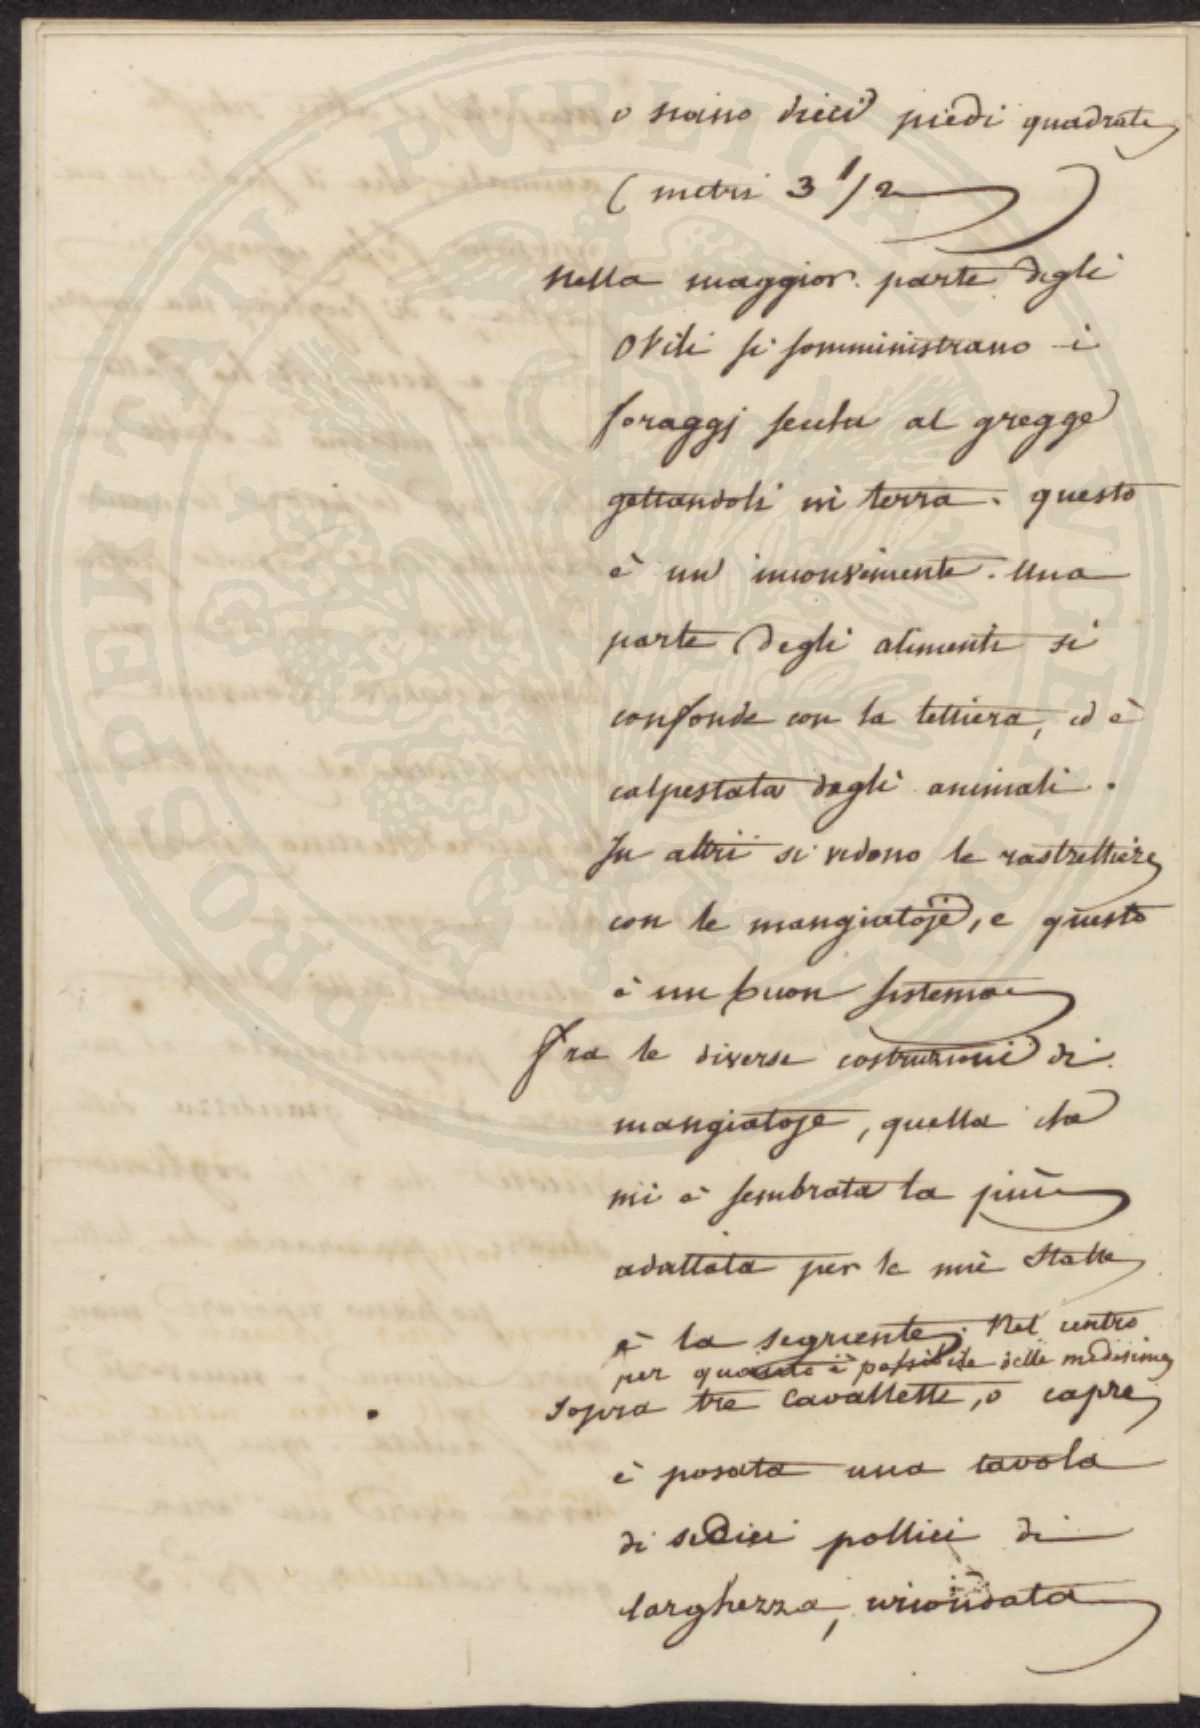 o siano dieci piedi quadrati
(metri 3 1/2)
Nella maggior parte degli
Ovili si somministrano i
foraggj secchi al gregge
gettandoli in terra. questo
è un inconveniente. Una
parte degli alimenti si
confonde con la lettiera, ed è
calpestata dagli animali.
In altri si vedono le rastrelliere
con le mangiatoje, e questo
è un buon sistema
Fra le diverse costruzioni di
mangiatoje, quella che
mi è sembrata la più
adattata per le mie Stalle
è la seguente. Nel centro
per quanto è possibile delle medesime
sopra tre Cavallette, o capre
è posata una tavola
di sedici pollici di
larghezza, circondata
PROSPERITATI PVBLICAE AVGENDAE